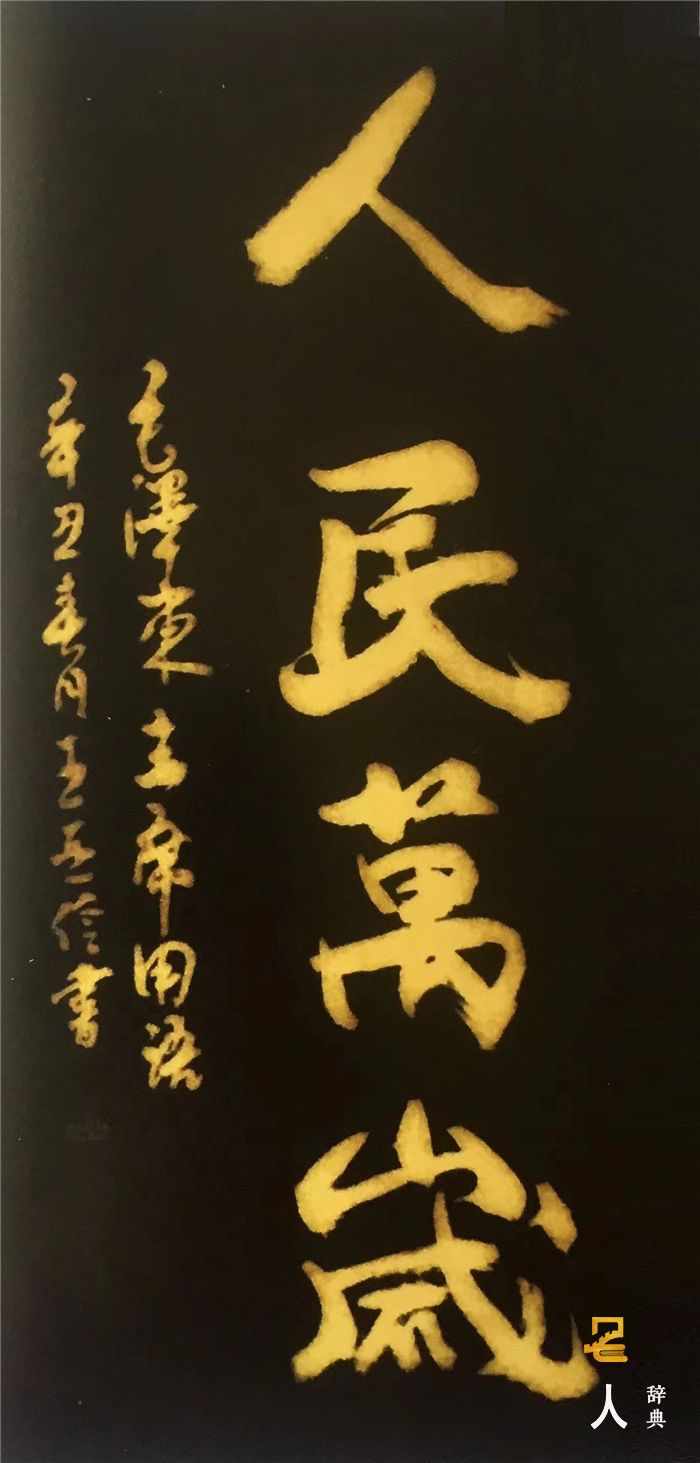 人民萬歲
毛澤東主席用语
辛丑春月王玉信書
人
辞典